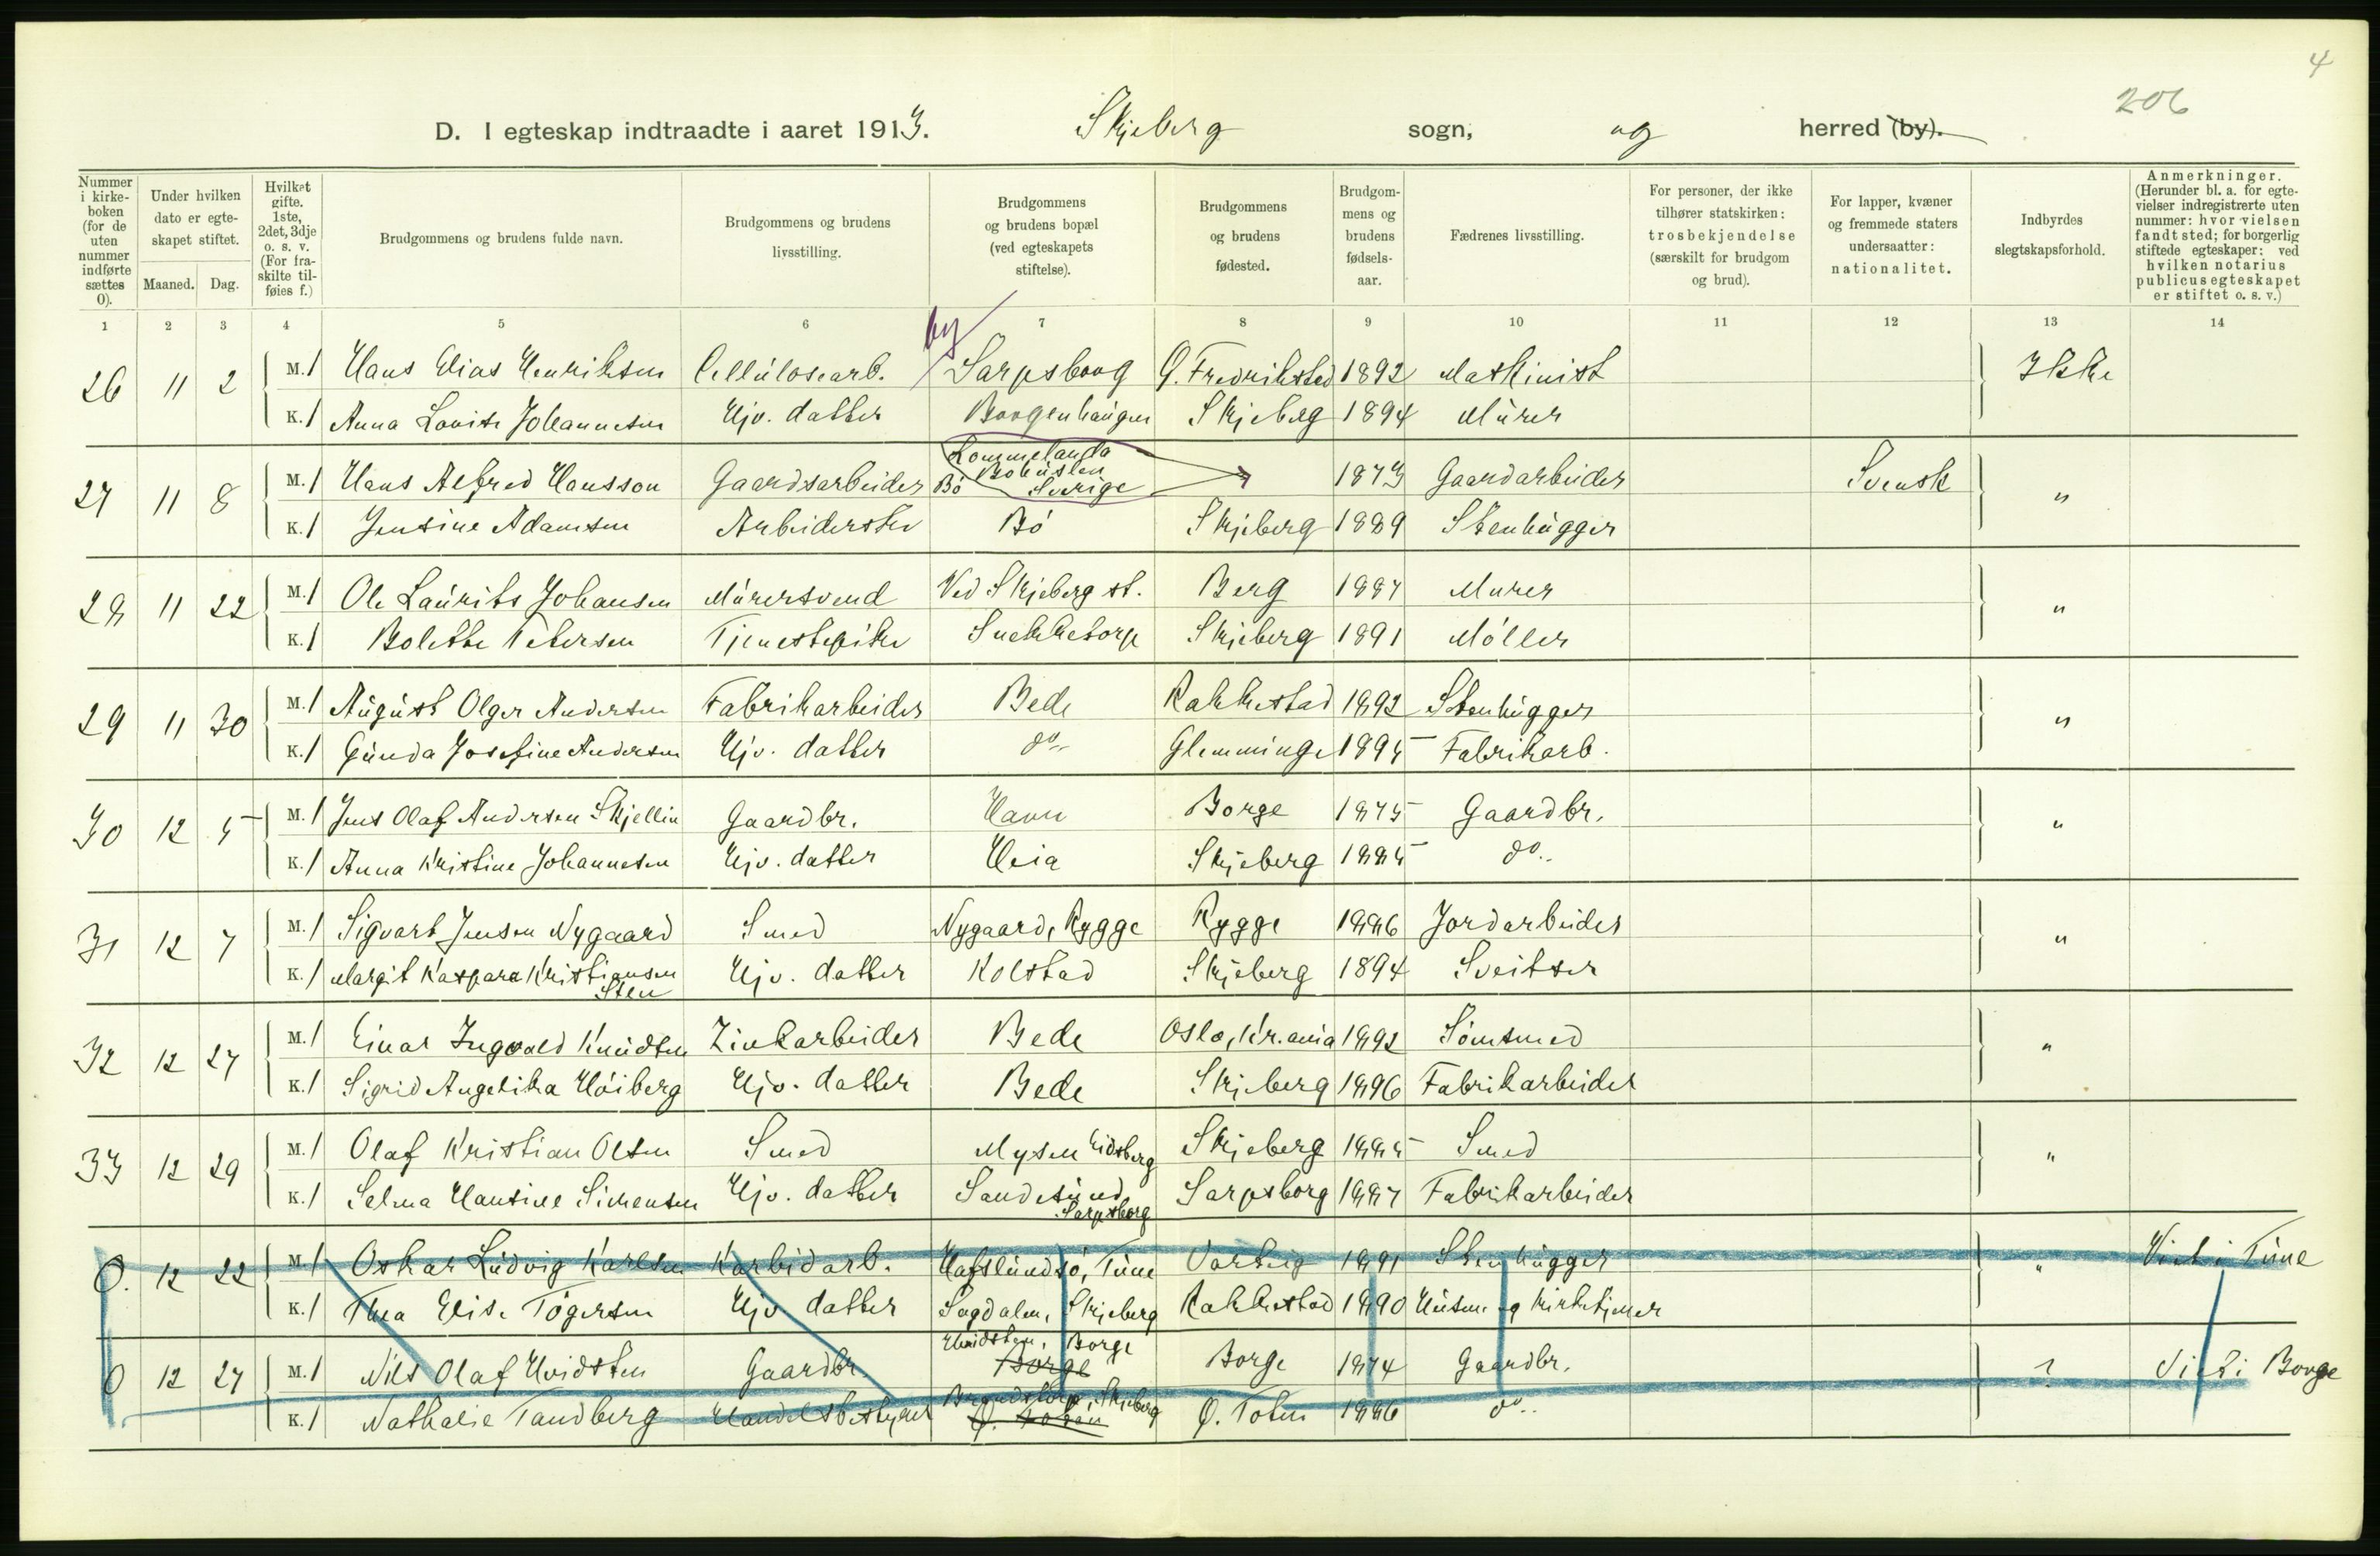 4
206
D. I egteskap indtraadte i aaret 1913. Skjeberg sogn, og herred (by).
Nummer i kirkeboken (for de uten nummer indførte sættes 0).
Under hvilken dato er egteskapet stiftet.
Maaned. Dag.
Hvilket gifte. 1ste, 2det, 3dje o. s. v. (For fraskilte tilføies f.)
Brudgommens og brudens fulde navn.
Brudgommens og brudens livsstilling.
Brudgommens og brudens bopæl (ved egteskapets stiftelse).
Brudgommens og brudens fødested.
Brudgommens og brudens fødselsaar.
Fædrenes livsstilling.
For personer, der ikke tilhører statskirken: trosbekjendelse (særskilt for brudgom og brud).
For lapper, kvæner og fremmede staters undersaatter: nationalitet.
Indbyrdes slegtskapsforhold.
Anmerkninger. (Herunder bl. a. for egtevielser indregistrerte uten nummer: hvor vielsen fandt sted; for borgerlig stiftede egteskaper: ved hvilken notarius publicus egteskapet er stiftet o. s. v.)
1 2 3 4 5 6 7 8 9 10 11 12 13 14
by
26 11 2 M. 1 Hans Elias Henriksen Cellulosearb. Sarpsborg Ø. Fredrikstad 1892 Maskinist Ikke
K. 1 Anna Lovise Johannesen Hjv. datter Borgenhaugen Skjeberg 1894 Murer
27 11 8 M. 1 Hans Alfred Hansson Gaardsarbeider Bö Lommelanda Bohuslen Sverige 1873 Gaardarbeider Svensk "
K. 1 Jensine Adamsen Arbeiderske Bö Skjeberg 1889 Stenhugger
28 11 22 M. 1 Ole Laurits Johansen Murersvend Ved Skjeberg st. Berg 1887 Murer "
K. 1 Bolette Petersen Tjenestepike Snekketorp Skjeberg 1891 Möller
29 11 30 M. 1 August Olger Andersen Fabrikarbeider Bede Rakkestad 1892 Stenhugger "
K. 1 Gunda Josefine Andersen Hjv. datter do Glemminge 1895 Fabrikarb.
30 12 5 M. 1 Jens Olaf Andersen Skjellin Gaardbr. Havn Borge 1875 Gaardbr. "
K. 1 Anna Kristine Johannesen Hjv. datter Heia Skjeberg 1885 do.
31 12 7 M. 1 Sigvart Jensen Nygaard Smed Nygaard, Rygge Rygge 1886 Jordarbeider "
K. 1 Margit Kaspara Kristiansen Sten Hjv. datter Kolstad Skjeberg 1894 Sveitser
32 12 27 M. 1 Einar Ingvald Knudsen Zinkarbeider Bede Oslo, Kr.ania 1892 Sömsmed "
K. 1 Sigrid Angelika Höiberg Hjv. datter Bede Skjeberg 1896 Fabrikarbeider
33 12 29 M. 1 Olaf Kristian Olsen Smed Mysen Eidsberg Skjeberg 1885 Smed "
K. 1 Selma Hansine Simensen Hjv. datter Sandesund Sarpsborg Sarpsborg 1887 Fabrikarbeider
0. 12 22 M. 1 Oskar Ludvig Karlsen Karbidarb. Hafslundsö, Tune Varteig 1891 Stenhugger " Viet i Tune
K. 1 Thea Elise Tögersen Hjv. datter Sagdalen, Skjeberg Rakkestad 1890 Husm. og Kirketjener
0 12 27 M. 1 Nils Olaf Hvidsten Gaardbr. Hvidsten, Borge Borge Borge 1874 Gaardbr. ? Viet i Borge
K. 1 Nathalie Tandberg Handelsbestyrer Brandstorp, Skjeberg Ø. Toten Ø. Toten 1886 do.